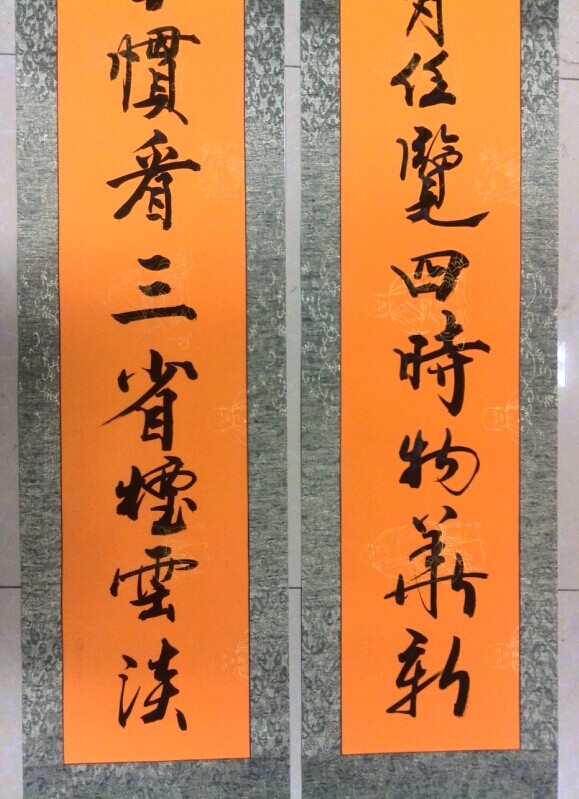 任覽四時物華新
慣看三省煙雲淡